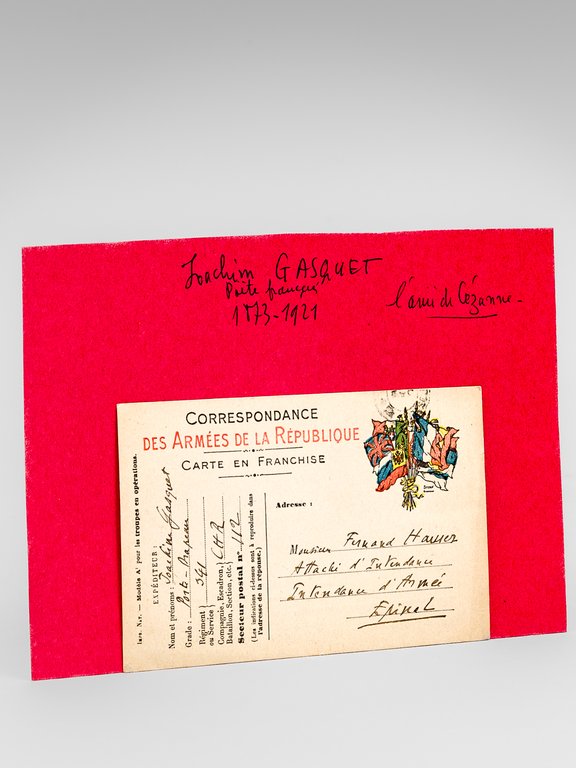 Joachim GASQUET
Poète français
1873-1921
l'ami de Cézanne-
CORRESPONDANCE
DES ARMÉES DE LA RÉPUBLIQUE
CARTE EN FRANCHISE
Adresse :
Monsieur Fernand Hauser
Attaché d'Intendance
Intendance d'Armée
Epinal
Modèle A' pour les troupes en opérations.
EXPÉDITEUR :
Nom et prénoms : Joachim Gasquet
Grade : Porte-Drapeau
Régiment
ou Service 341
Compagnie, Escadron,
Bataillon, Section, etc. CHR
Secteur postal n° 112
(Les indications ci-dessus sont à reproduire dans
l'adresse de la réponse.)